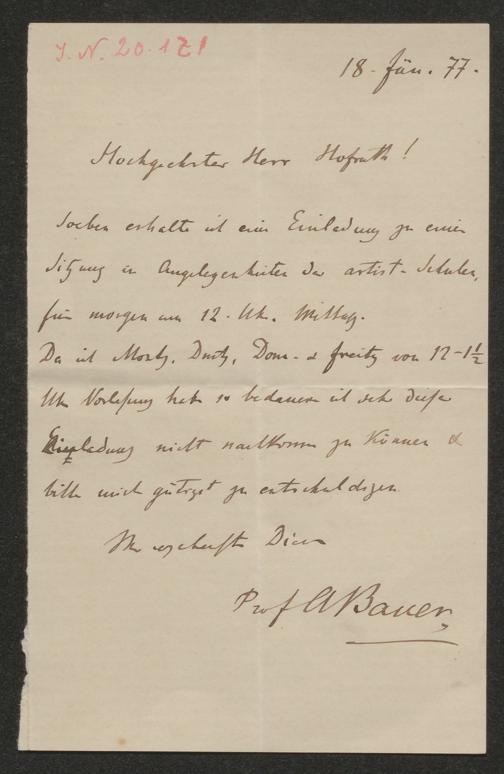 J. N. 20.171
18. Jän. 77.
Hochgeehrter Herr Hofrath!
Soeben erhalte ich eine Einladung zu einer
Sitzung in Angelegenheiten der artist. Schulen,
für morgen um 12. Uhr. Mittag.
Da ich Montg, Dinstg, Donn. & Freitg von 12–1½
Uhr Vorlesung habe so bedauere ich sehr dieser
Einladung nicht nachkommen zu können &
bitte mich gütigst zu entschuldigen
Ihr ergebenster Diener
Prof ABauer